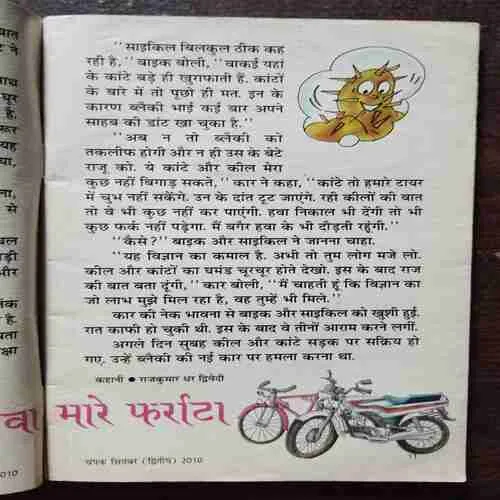 ‘‘साइकिल बिलकुल ठीक कह
रही है,’’ बाइक बोली, ‘‘वाकई यहां
के कांटे बड़े ही खुराफाती हैं. कांटों
के बारे में तो पूछो ही मत. इन के
कारण ब्लैकी भाई कई बार अपने
साहब की डांट खा चुका है.’’
‘‘अब न तो ब्लैकी को
तकलीफ होगी और न ही उस के बेटे
राजू को. ये कांटे और कील मेरा
कुछ नहीं बिगाड़ सकते,’’ कार ने कहा, ‘‘कांटे तो हमारे टायर
में चुभ नहीं सकेंगे. उन के दांत टूट जाएंगे. रही कीलों की बात
तो वे भी कुछ नहीं कर पाएंगी. हवा निकाल भी देंगी तो भी
कुछ फर्क नहीं पड़ेगा. मैं बगैर हवा के भी दौड़ती रहूंगी.’’
‘‘कैसे?’’ बाइक और साइकिल ने जानना चाहा.
‘‘यह विज्ञान का कमाल है. अभी तो तुम लोग मजे लो.
कील और कांटों का घमंड चूरचूर होते देखो. इस के बाद राज
की बात बता दूंगी,’’ कार बोली, ‘‘मैं चाहती हूं कि विज्ञान का
जो लाभ मुझे मिल रहा है, वह तुम्हें भी मिले.’’
कार की नेक भावना से बाइक और साइकिल को खुशी हुई.
रात काफी हो चुकी थी. इस के बाद वे तीनों आराम करने लगीं.
अगले दिन सुबह कील और कांटे सड़क पर सक्रिय हो
गए. उन्हें ब्लैकी की नई कार पर हमला करना था.
कहानी ● राजकुमार धर द्विवेदी
वा मारे फर्राटा
चंपक सितंबर (द्वितीय) 2010